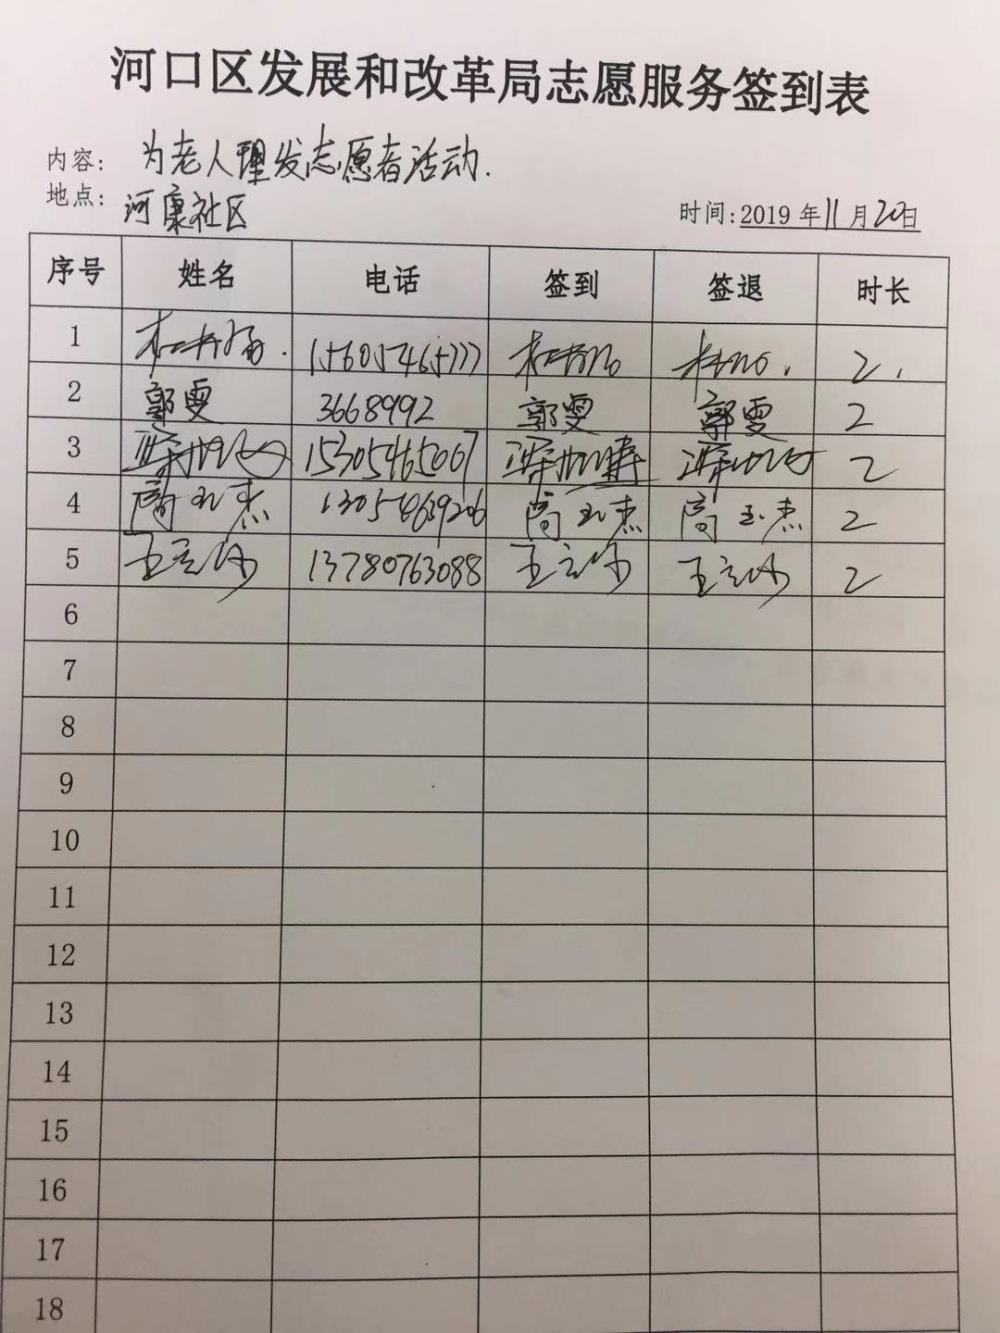 河口区发展和改革局志愿服务签到表
内容: 为老人理发志愿者活动.
地点: 河康社区
时间:2019年11月20日
序号 姓名 电话 签到 签退 时长
1 15605465777 2.
2 郭雯 3668992 郭雯 郭雯 2
3 15305465067 2
4 高玉杰 13054639206 高玉杰 高玉杰 2
5 13780763088 2
6
7
8
9
10
11
12
13
14
15
16
17
18